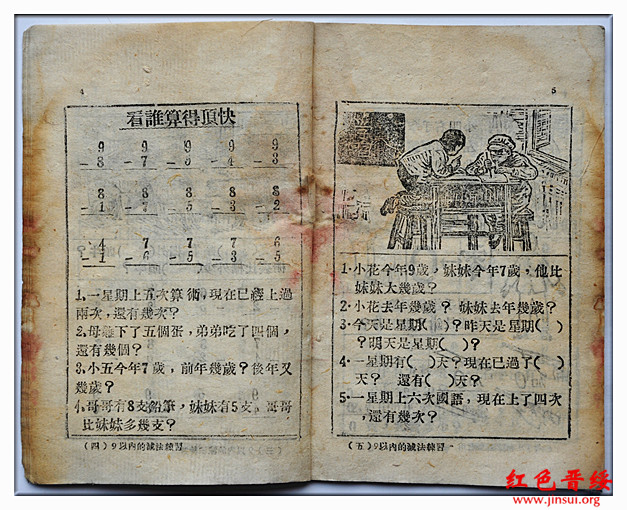 4
看誰算得頂快
9 9 9 9 9
-8 -7 -5 -4 -3
8 8 8 8 8
-1 -7 -5 -3 -2
4 7 7 7 6
-1 -6 -5 -3 -5
1,一星期上五次算術,現在已經上過
兩次,還有幾次?
2,母雞下了五個蛋,弟弟吃了四個,
還有幾個?
3,小五今年7歲,前年幾歲?後年又
幾歲?
4,哥哥有8支鉛筆,妹妹有5支,哥哥
比妹妹多幾支?
(四)9以內的減法練習
5
1·小花今年9歲,妹妹今年7歲,他比
妹妹大幾歲?
2·小花去年幾歲?妹妹去年幾歲?
3·今天是星期( )?昨天是星期( )
?明天是星期( )?
4·一星期有( )天?現在已過了( )
天? 還有( )天?
5·一星期上六次國語,現在上了四次
,還有幾次?
(五)9以內的減法練習
红色晋绥
www.jinsui.org